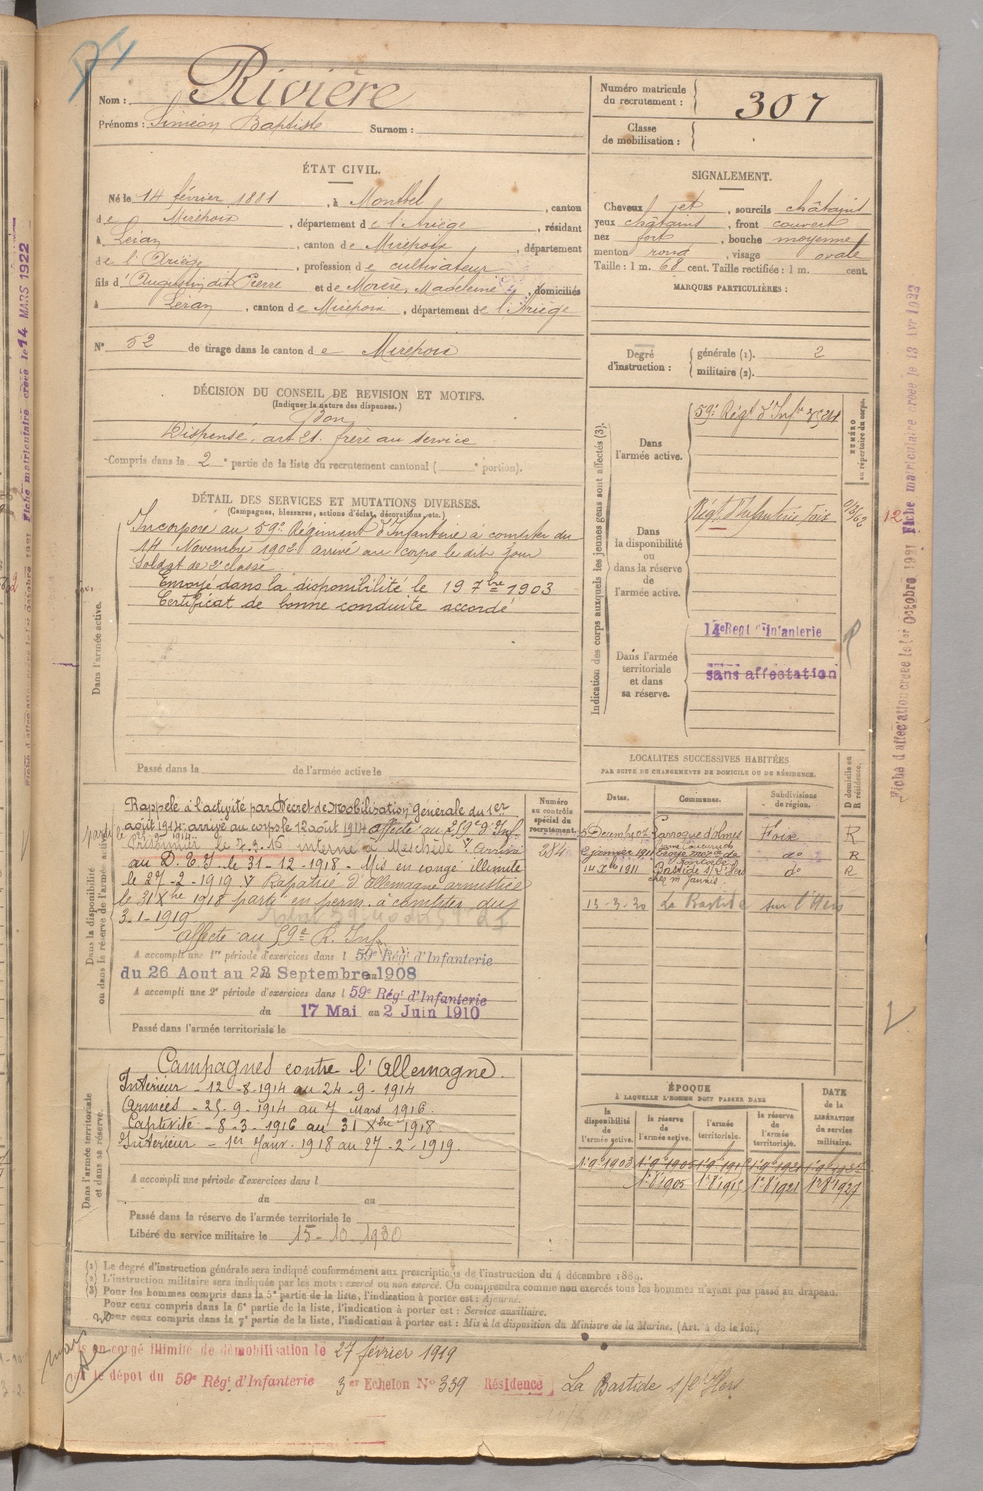 Nom : Rivière
Prénoms : Siméon Baptiste Surnom :
Numéro matricule du recrutement : 307
Classe de mobilisation :
ÉTAT CIVIL.
Né le 14 février 1881, à Montbel, canton
de Mirepoix, département de l'Ariège, résidant
à Léran, canton de Mirepoix, département
de l'Ariège, profession de cultivateur
fils d'Augustin dit Pierre et de Morère, Madeleine, domiciliés
à Léran, canton de Mirepoix, département de l'Ariège
N° 52 de tirage dans le canton de Mirepoix
SIGNALEMENT.
Cheveux jet, sourcils châtains
yeux châtains, front couvert
nez fort, bouche moyenne
menton rond, visage ovale
Taille : 1 m. 68 cent. Taille rectifiée : 1 m. cent.
MARQUES PARTICULIÈRES :
Degré d'instruction : générale (1). 2
militaire (2).
DÉCISION DU CONSEIL DE REVISION ET MOTIFS.
(Indiquer la nature des dispenses.)
Bon
Dispensé, art 21. frère au service
Compris dans la 2e partie de la liste du recrutement cantonal ( e portion).
DÉTAIL DES SERVICES ET MUTATIONS DIVERSES.
(Campagnes, blessures, actions d'éclat, décorations, etc.)
Dans l'armée active.
Incorporé au 59e Régiment d'Infanterie à compter du
14 Novembre 1902 arrivé au corps le dit jour
Soldat de 2e classe
Envoyé dans la disponibilité le 19 7bre 1903
Certificat de bonne conduite accordé
Passé dans la de l'armée active le
Indication des corps auxquels les jeunes gens sont affectés (3).
NUMÉRO au répertoire du corps.
Dans l'armée active. 59e Régt d'Infie
Dans la disponibilité ou dans la réserve de l'armée active. Régt Infanterie Foix
Dans l'armée territoriale et dans sa réserve.
14e Regt d'Infanterie
sans affectation
Dans la disponibilité ou dans la réserve de l'armée active.
Rappelé à l'activité par Décret de Mobilisation Générale du 1er
août 1914 arrivé au corps le 12 août 1914 affecté au 259e d'Inf.
Prisonnier le 7.3.16 interné à Meschede Arrivé
au D.T.I. le 31-12-1918 - Mis en congé illimité
le 27-2-1919 Rapatrié d'Allemagne armistice
le 31 Xbre 1918 parti en perm. à compter du
3-1-1919
affecté au 59e R. Inf
A accompli une 1re période d'exercices dans l 59e Régt d'Infanterie
du 26 Aout au 22 Septembre 1908
A accompli une 2e période d'exercices dans l 59e Régt d'Infanterie
du 17 Mai au 2 Juin 1910
Passé dans l'armée territoriale le
Numéro au contrôle spécial du recrutement.
284
LOCALITÉS SUCCESSIVES HABITÉES
PAR SUITE DE CHANGEMENTS DE DOMICILE OU DE RÉSIDENCE.
Dates. Communes. Subdivisions de région. D domicile ou R résidence.
Laroque d'Olmes Foix R
2 janvier 1911 do R
1911 Bastide s/ l'Hers do R
13-3-20 La Bastide sur l'Hers
Dans l'armée territoriale et dans sa réserve.
Campagnes contre l'Allemagne.
Intérieur - 12-8-1914 au 24-9-1914
Armées - 25-9-1914 au 7 Mars 1916.
Captivité - 8-3-1916 au 31 Xbre 1918
Intérieur - 1er Janv. 1918 au 27-2-1919.
A accompli une période d'exercices dans l
du au
Passé dans la réserve de l'armée territoriale le
Libéré du service militaire le 15-10-1930
ÉPOQUE
À LAQUELLE L'HOMME DOIT PASSER DANS
la disponibilité de l'armée active. la réserve de l'armée active. l'armée territoriale. la réserve de l'armée territoriale. DATE de la LIBÉRATION du service militaire.
(1) Le degré d'instruction générale sera indiqué conformément aux prescriptions de l'instruction du 4 décembre 1889.
(2) L'instruction militaire sera indiquée par les mots : exercé ou non exercé. On comprendra comme non exercés tous les hommes n'ayant pas passé au drapeau.
(3) Pour les hommes compris dans la 5e partie de la liste, l'indication à porter est : Ajourné.
Pour ceux compris dans la 6e partie de la liste, l'indication à porter est : Service auxiliaire.
Pour ceux compris dans la 7e partie de la liste, l'indication à porter est : Mis à la disposition du Ministre de la Marine. (Art. 4 de la loi.)
en congé illimité de démobilisation le 27 février 1919
le dépôt du 59e Rég. d'Infanterie 3er Echelon N° 339 Résidence La Bastide s/l'Hers
Fiche matriculaire créée le 14 MARS 1922
Fiche d'affectation créée le 1er Octobre 1921 Fiche matriculaire créée le 13 Avr 1923